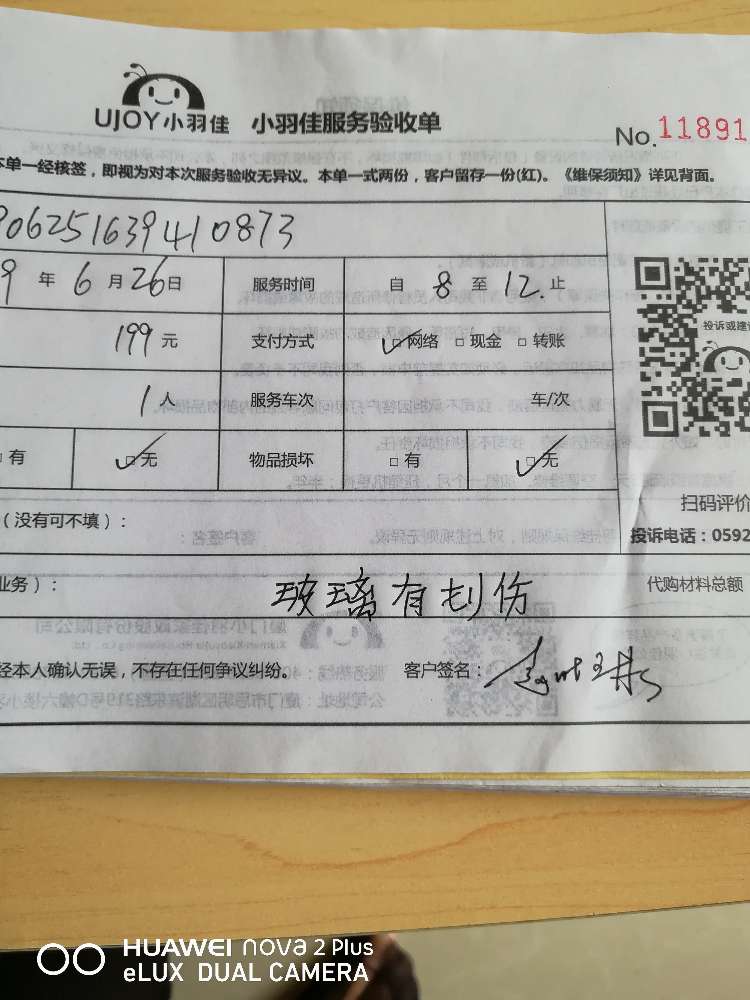 UJOY小羽佳 小羽佳服务验收单
No. 11891
本单一经核签，即视为对本次服务验收无异议。本单一式两份，客户留存一份(红)。《维保须知》详见背面。
90625163941 0873
9 年 6 月 26 日 服务时间 自 8 至 12. 止
199 元 支付方式 □网络 □现金 □转账
投诉或建议
1 人 服务车次 车/次
□有 □无 物品损坏 □有 □无
扫码评价
（没有可不填）：
投诉电话：0592
业务）： 玻璃有刮伤 代购材料总额
经本人确认无误，不存在任何争议纠纷。 客户签名：
HUAWEI nova 2 Plus
eLUX DUAL CAMERA